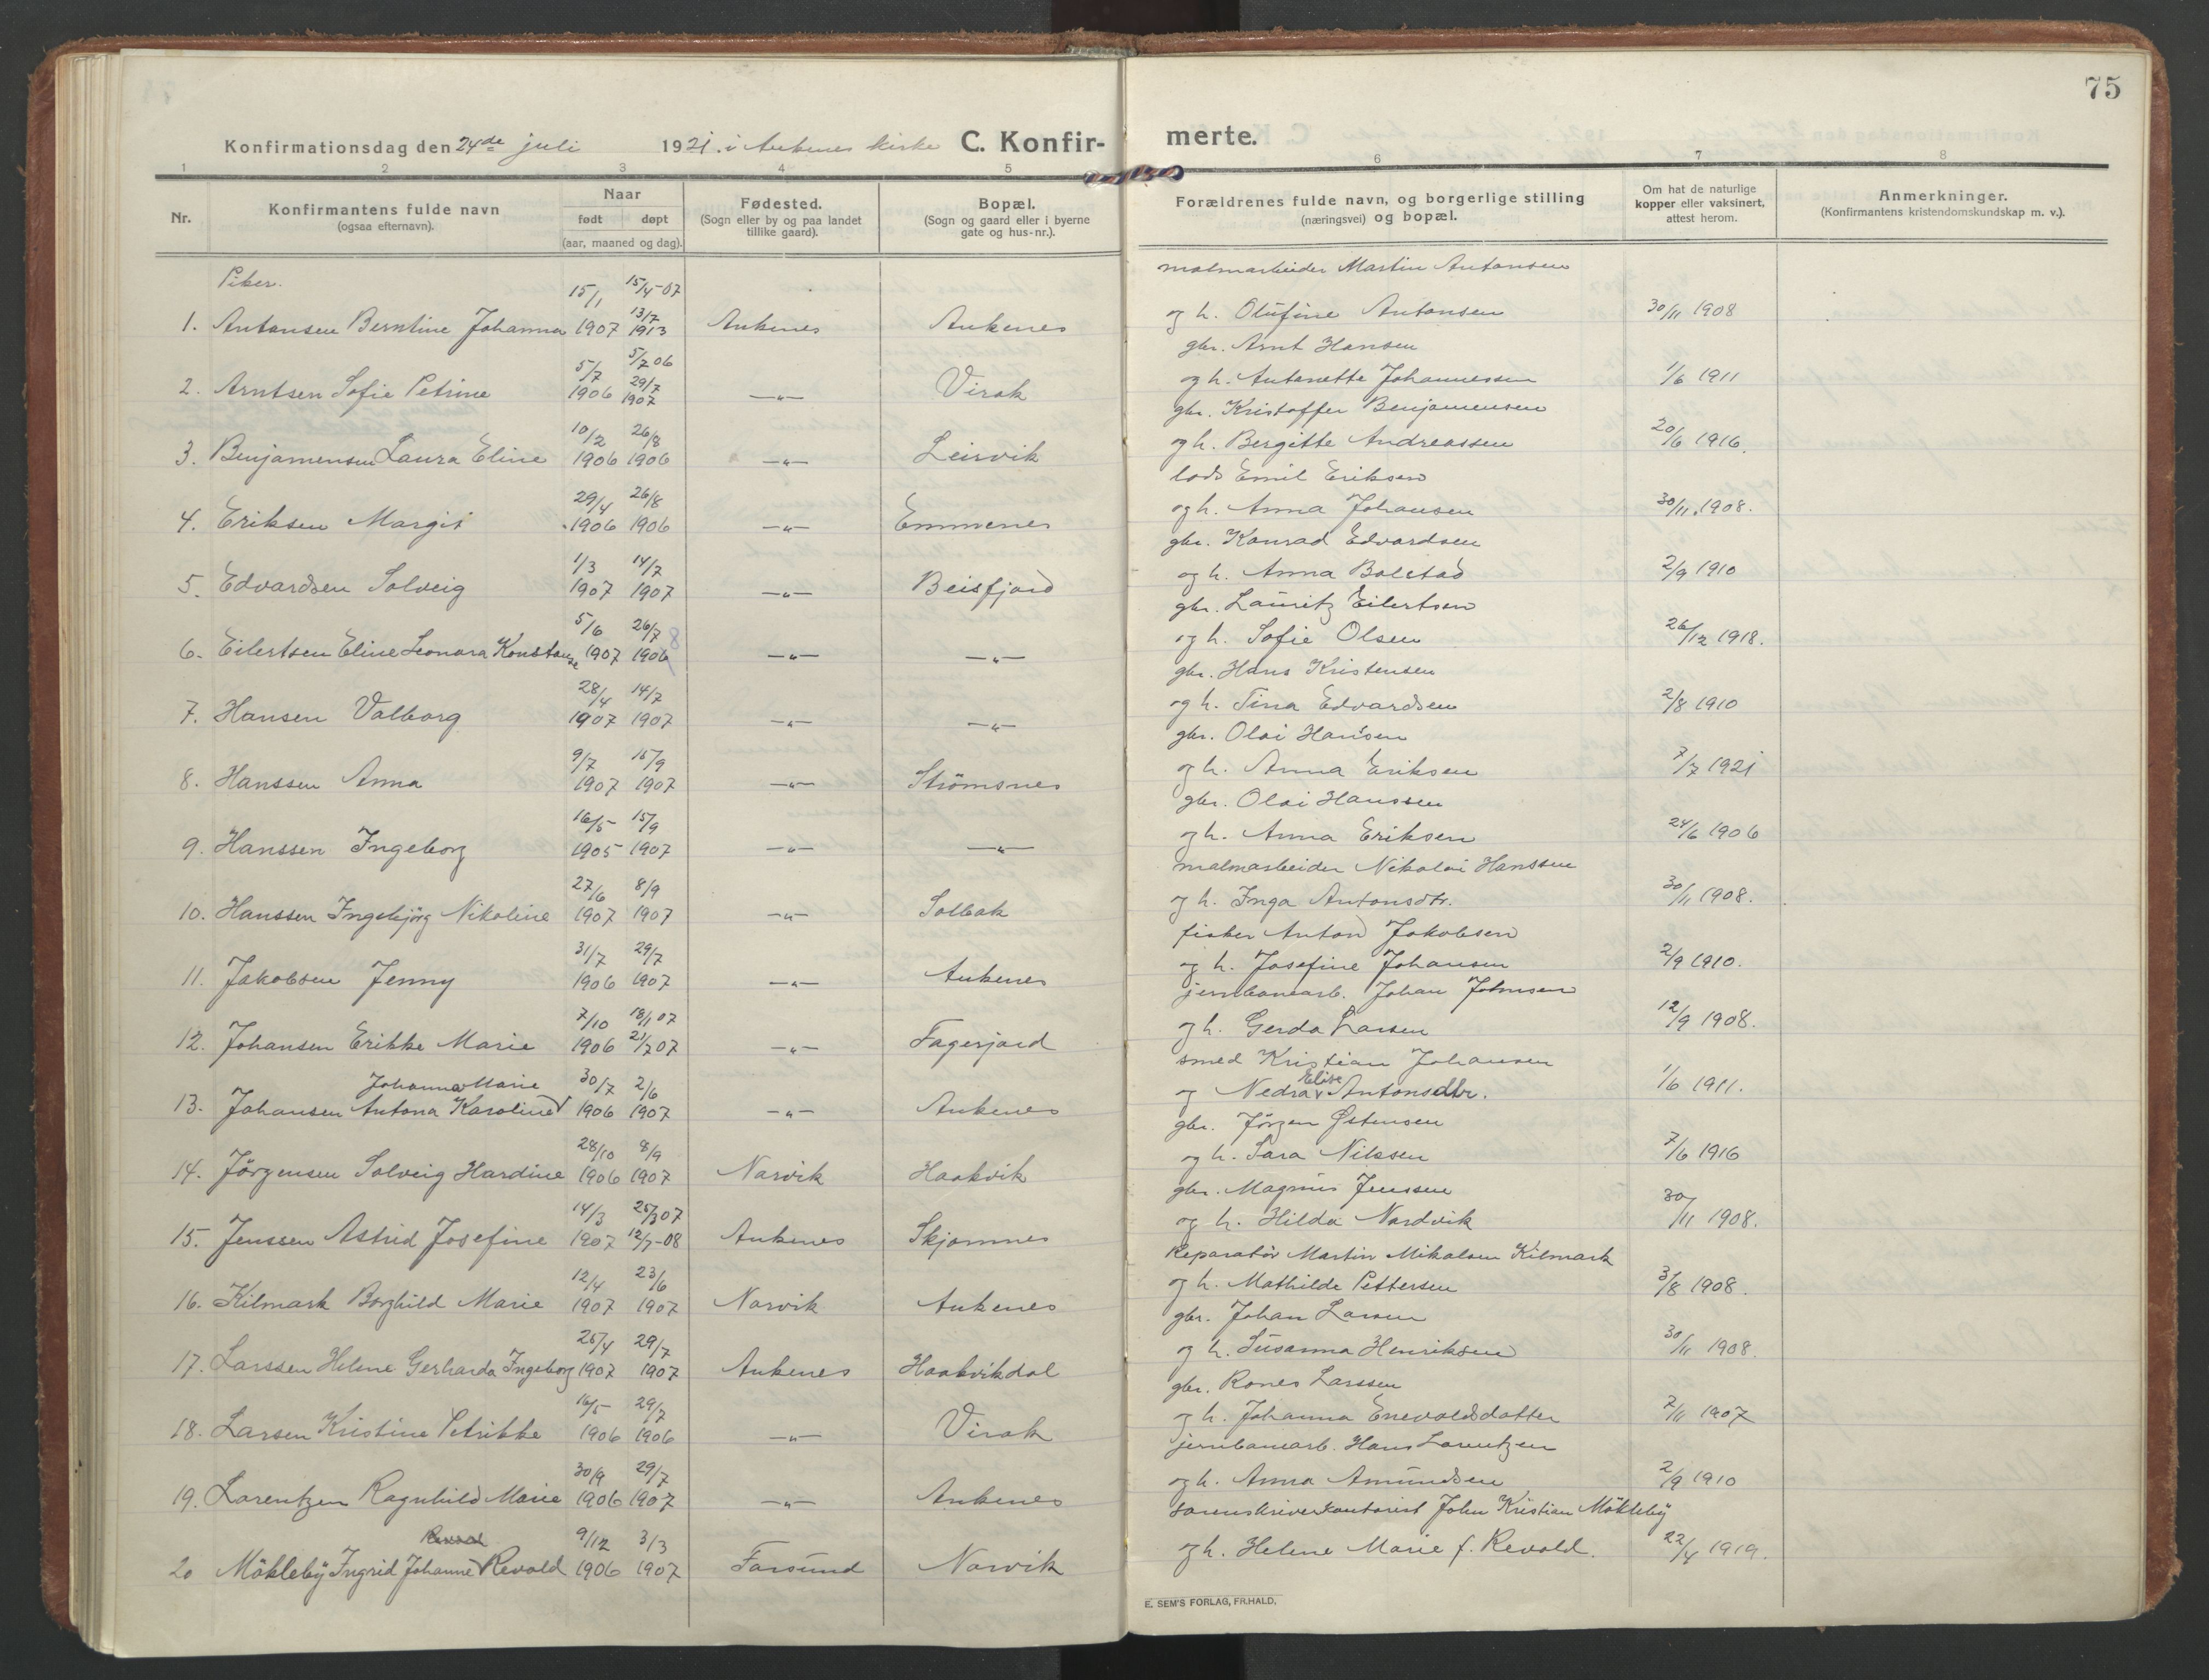 75
Konfirmationsdag den 24de juli 1921. i Ankenes kirke C. Konfir-merte.
1 2 3 4 5 6 7 8
Nr. Konfirmantens fulde navn (ogsaa efternavn). Naar født døpt (aar, maaned og dag). Fødested. (Sogn eller by og paa landet tillike gaard). Bopæl. (Sogn og gaard eller i byerne gate og hus-nr.). Forældrenes fulde navn, og borgerlige stilling (næringsvei) og bopæl. Om hat de naturlige kopper eller vaksinert, attest herom. Anmerkninger. (Konfirmantens kristendomskundskap m. v.).
Piker.
15/1 15/4-07 malmarbeider Martin Antonsen
1. Antonsen Berntine Johanna 1907 13/7 1913 Ankenes Ankenes og h. Olufine Antonsen 30/11 1908
5/7 5/7 06 gbr. Arnt Hansen
2. Arntsen Sofie Petrine 1906 29/7 1907 —"— Virak og h. Antonette Johannessen 1/6 1911
10/2 26/8 gbr. Kristoffer Benjamensen
3. Benjamensen Laura Eline 1906 1906 —"— Leirvik og h. Bergitte Andreassen 20/6 1916.
29/4 26/8 lods Emil Eriksen
4. Eriksen Margit 1906 1906 —"— Emmenes og h. Anna Johansen 30/11 1908.
1/3 14/7 gbr. Konrad Edvardsen
5. Edvardsen Solveig 1907 1907 —"— Beisfjord og h. Anna Bolstad 2/9 1910
5/6 26/7 8 gbr. Lauritz Eilertsen
6. Eilertsen Eline Leonora Konstanse 1907 1906 —"— —"— og h. Sofie Olsen 26/12 1918.
28/4 14/7 gbr. Hans Kristensen
7. Hansen Valborg 1907 1907 —"— —"— og h. Tina Edvardsen 2/8 1910
9/7 15/9 gbr. Olai Hansen
8. Hanssen Anna 1907 1907 —"— Strömsnes og h. Anna Eriksen 7/7 1921
16/5 15/9 gbr. Olai Hanssen
9. Hanssen Ingeborg 1905 1907 —"— —"— og h. Anna Eriksen 24/6 1906
27/6 8/9 malmarbeider Nikolai Hanssen
10. Hanssen Ingebjörg Nikoline 1907 1907 —"— Solbak og h. Inga Antonsdtr. 30/11 1908.
31/7 29/7 fisker Anton Jakobsen
11. Jakobsen Jenny 1906 1907 —"— Ankenes og h. Josefine Johansen 2/9 1910.
7/10 18/1 07 jernbanearb. Johan Johnsen
12. Johansen Erikke Marie 1906 21/7 07 —"— Fagerjord og h. Gerda Larsen 12/9 1908.
Johanna Marie 30/7 2/6 smed Kristian Johansen
13. Johansen Antona Karoline 1906 1907 —"— Ankenes og Nedra Elise Antonsdtr. 1/6 1911.
28/10 8/9 gbr. Jörgen Østensen
14. Jörgensen Solveig Hardine 1906 1907 Narvik Haakvik og h. Sara Nilssen 7/6 1916
14/3 25/3 07 gbr. Magnus Jenssen
15. Jenssen Astrid Josefine 1907 12/7-08 Ankenes Skjomnes og h. Hilda Nordvik 30/11 1908.
12/4 23/6 Reparatör Martin Mikalsen Kilmark
16. Kilmark Borghild Marie 1907 1907 Narvik Ankenes og h. Mathilde Pettersen 3/8 1908.
25/4 29/7 gbr. Johan Larsen
17. Larssen Helene Gerharda Ingeborg 1907 1907 Ankenes Haakvikdal og h. Susanna Henriksen 30/11 1908.
16/5 29/7 gbr. Rones Larssen
18. Larsen Kristine Petrikke 1906 1906 —"— Virak og h. Johanna Enevoldsdatter 7/11 1907
30/9 29/7 jernbanearb. Hans Lorentzen
19. Lorentzen Ragnhild Marie 1906 1907 —"— Ankenes og h. Anna Amundsen 2/9 1910
Revold 9/12 3/3 sorenskriverkontorist John Kristian Mökleby
20 Mökleby Ingrid Johanne Revold 1906 1907 Farsund Narvik og h. Helene Marie f. Revold. 22/4 1919.
E. SEM'S FORLAG, FR.HALD.